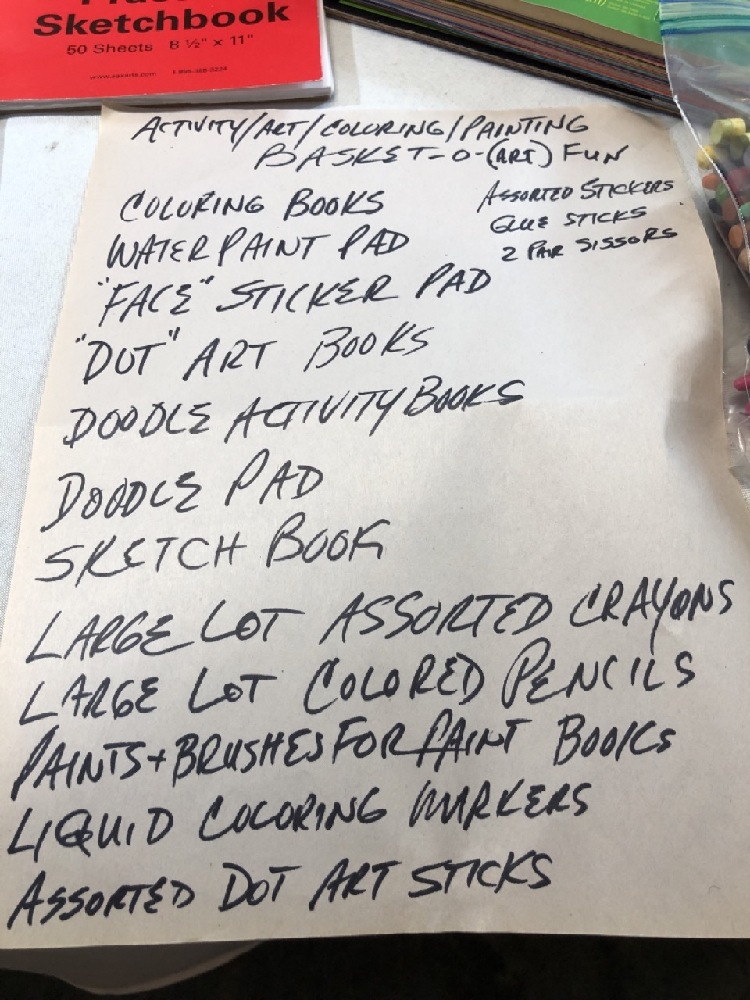 Sketchbook
50 Sheets 8 ½" x 11"
ACTIVITY/ART/COLORING/PAINTING
BASKET-O-(ART) FUN
COLORING BOOKS
WATER PAINT PAD
"FACE" STICKER PAD
"DOT" ART BOOKS
DOODLE ACTIVITY BOOKS
DOODLE PAD
SKETCH BOOK
LARGE LOT ASSORTED CRAYONS
LARGE LOT COLORED PENCILS
PAINTS + BRUSHES FOR PAINT BOOKS
LIQUID COLORING MARKERS
ASSORTED DOT ART STICKS
ASSORTED STICKERS
GLUE STICKS
2 PAIR SISSORS